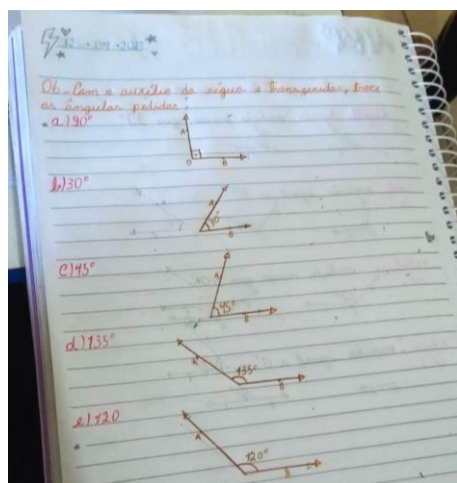 06 - Com o auxílio da régua e transferidor, trace
os ângulos pedidos:
a) 90°
A
O
B
b) 30°
A
30°
B
c) 45°
A
45°
B
d) 135°
A
135°
B
e) 120
A
120°
B